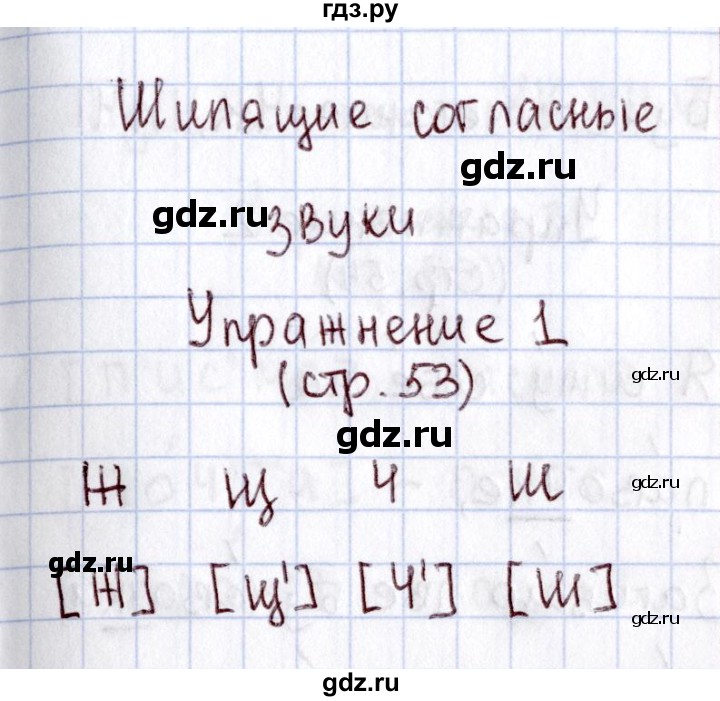 гдз.ру
Шипящие согласные
gdz.ru
gdz.ru
звуки
Упражнение 1
(стр. 53)
gdz.ru
gdz.ru
ж щ ч ш
gdz.ru
gdz.ru
[ж] [щ'] [ч'] [ш]
gdz.ru
gdz.ru